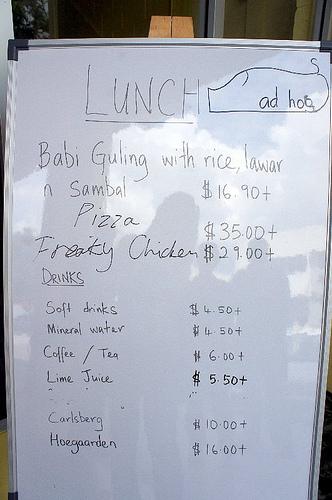 LUNCH
S
ad hoc
Babi Guling with rice, lawar
n Sambal $16.90+
Pizza
$35.00+
Freaky Chicken $29.00+
DRINKS
Soft drinks $4.50+
Mineral water $4.50+
Coffee / Tea $6.00+
Lime Juice $5.50+
Carlsberg $10.00+
Hoegaarden $16.00+